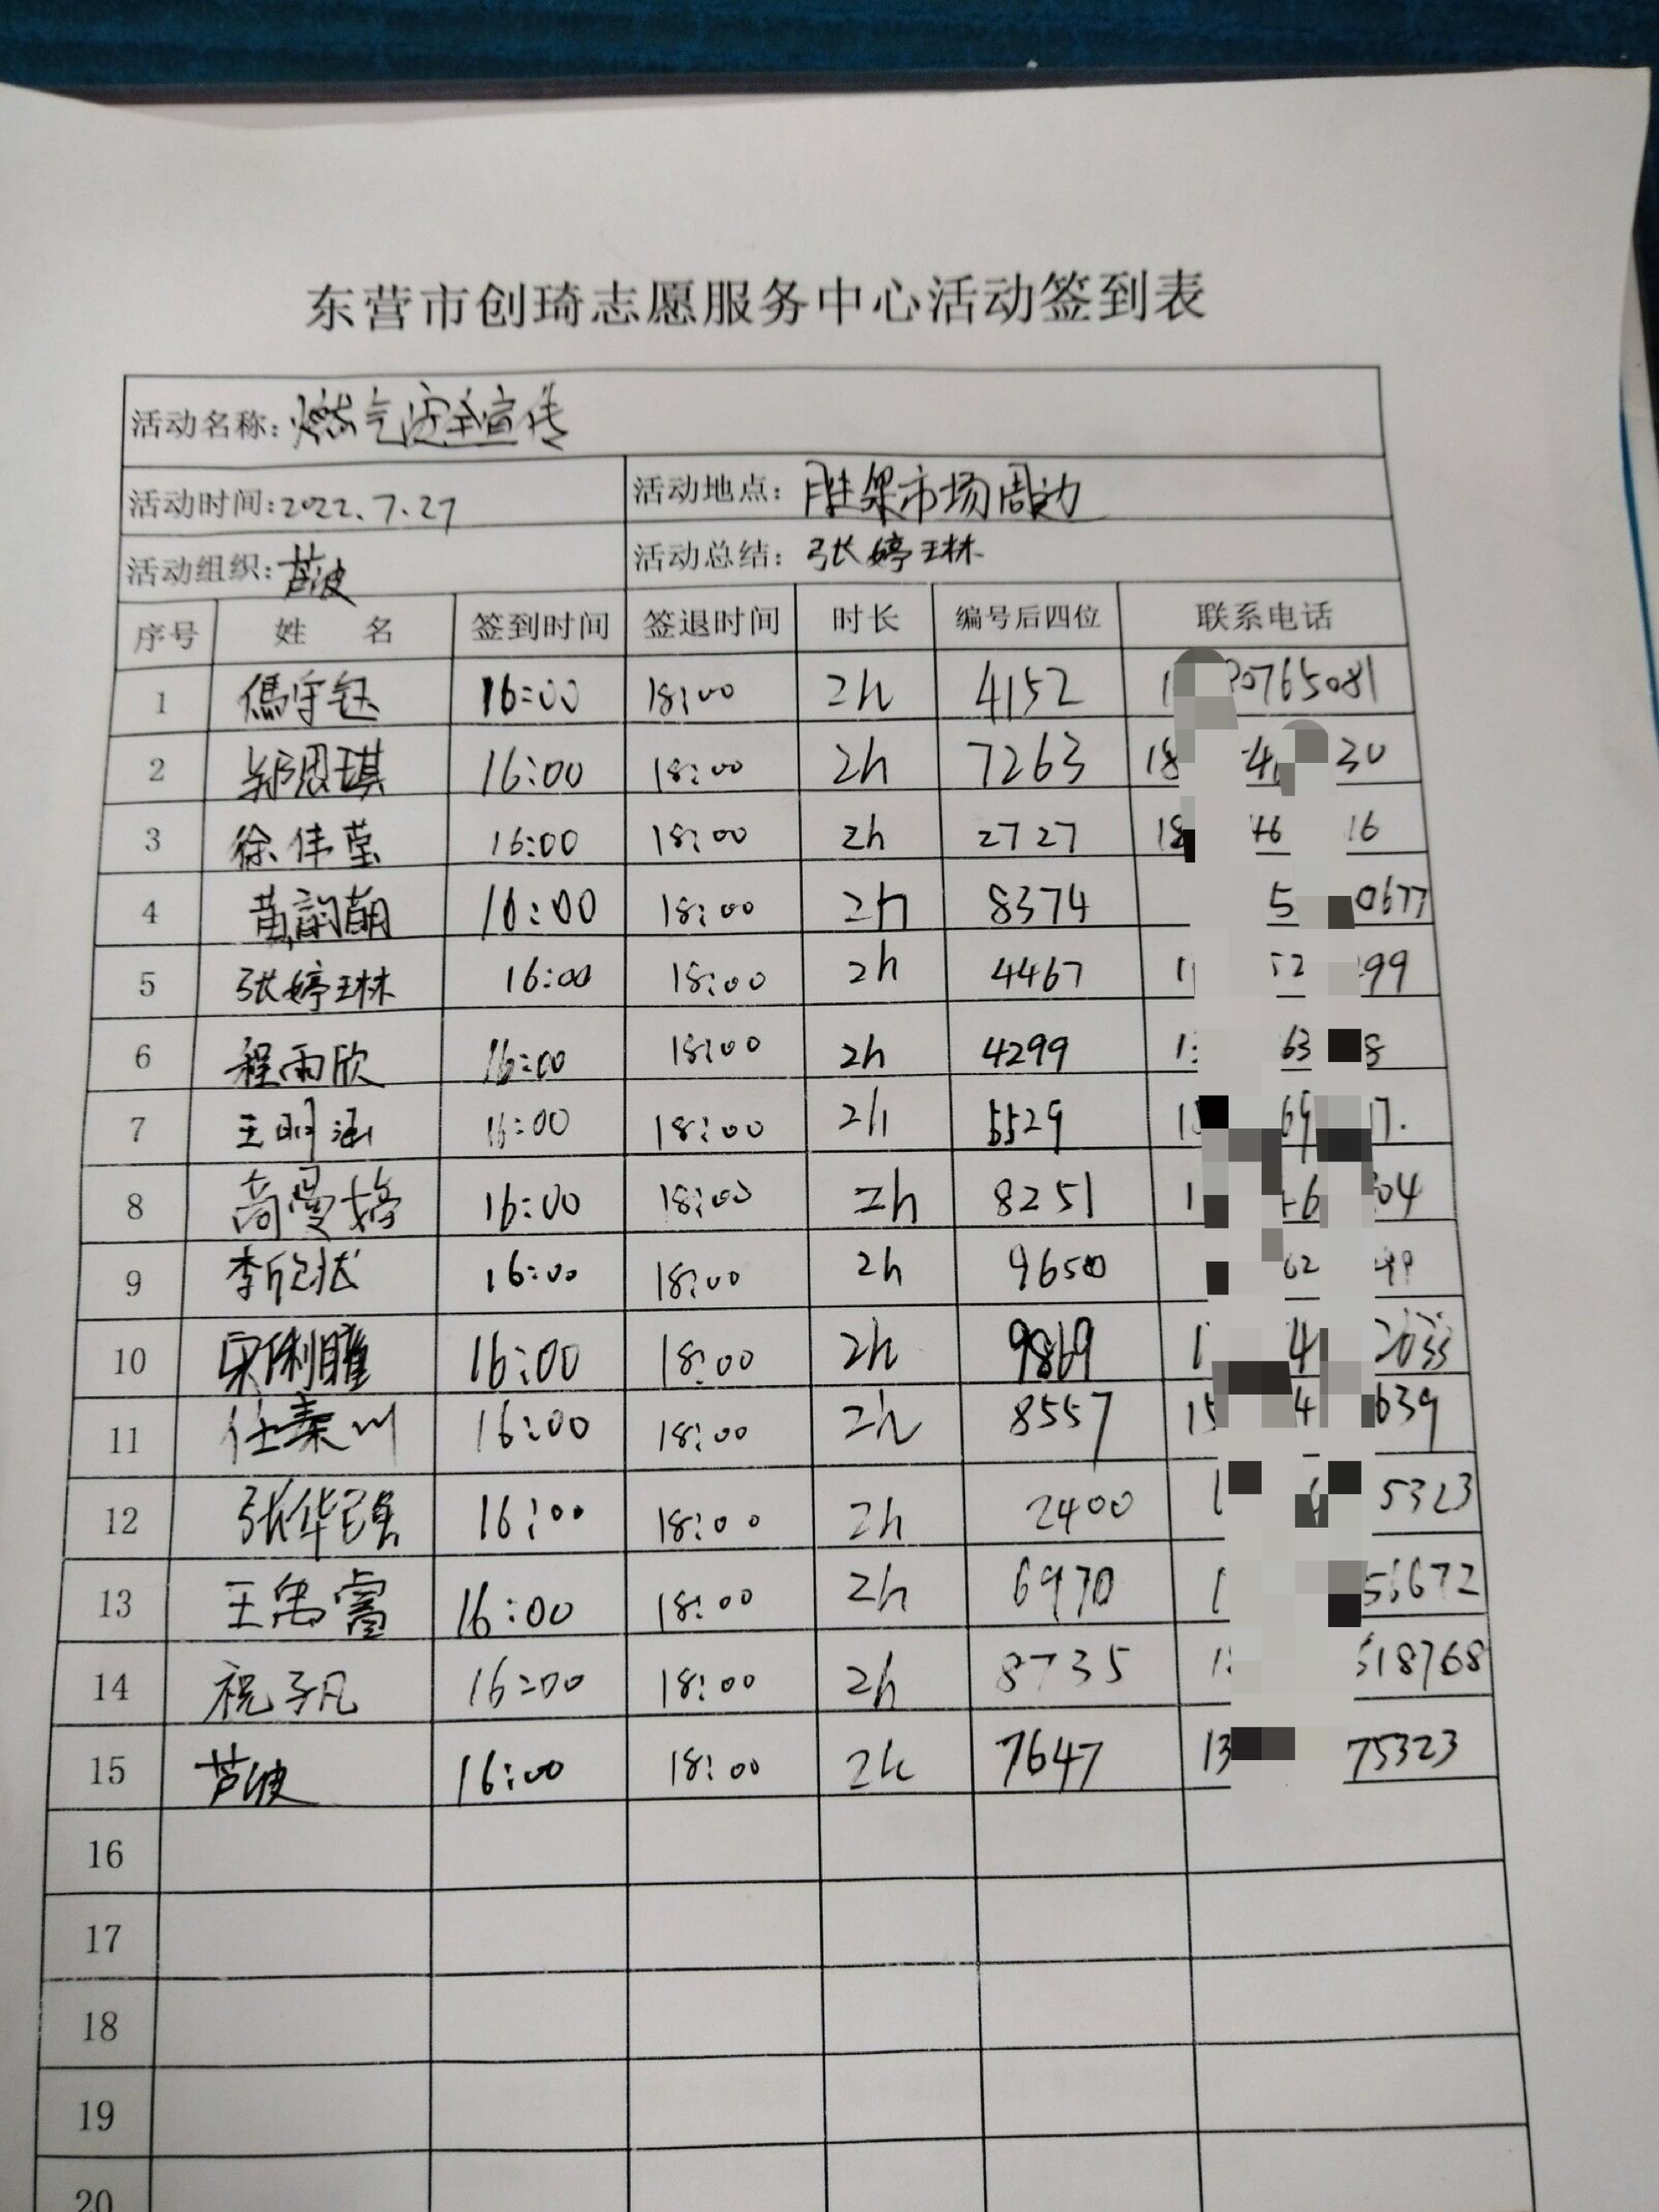 东营市创琦志愿服务中心活动签到表
活动名称: 燃气安全宣传
活动时间: 2022.7.27 活动地点: 胜采市场周边
活动组织: 芦波 活动总结: 张婷琳
序号 姓 名 签到时间 签退时间 时长 编号后四位 联系电话
1 16:00 18:00 2h 4152 0765081
2 郑思琪 16:00 18:00 2h 7263 18 30
3 徐伟莹 16:00 18:00 2h 2727 18 46 16
4 黄韵萌 16:00 18:00 2h 8374 5 0677
5 张婷琳 16:00 18:00 2h 4467 1 52 99
6 程雨欣 16:00 18:00 2h 4299 1 63 8
7 王明涵 16:00 18:00 2h 5529 1 69 17.
8 高曼婷 16:00 18:00 2h 8251 1 6 04
9 16:00 18:00 2h 9650 62 99
10 16:00 18:00 2h 9869 1 4 2033
11 任秦川 16:00 18:00 2h 8557 15 4 639
12 16:00 18:00 2h 2400 1 5323
13 王禹睿 16:00 18:00 2h 6970 1 56672
14 祝子凡 16:00 18:00 2h 8735 1 518768
15 芦波 16:00 18:00 2h 7647 13 75323
16
17
18
19
20